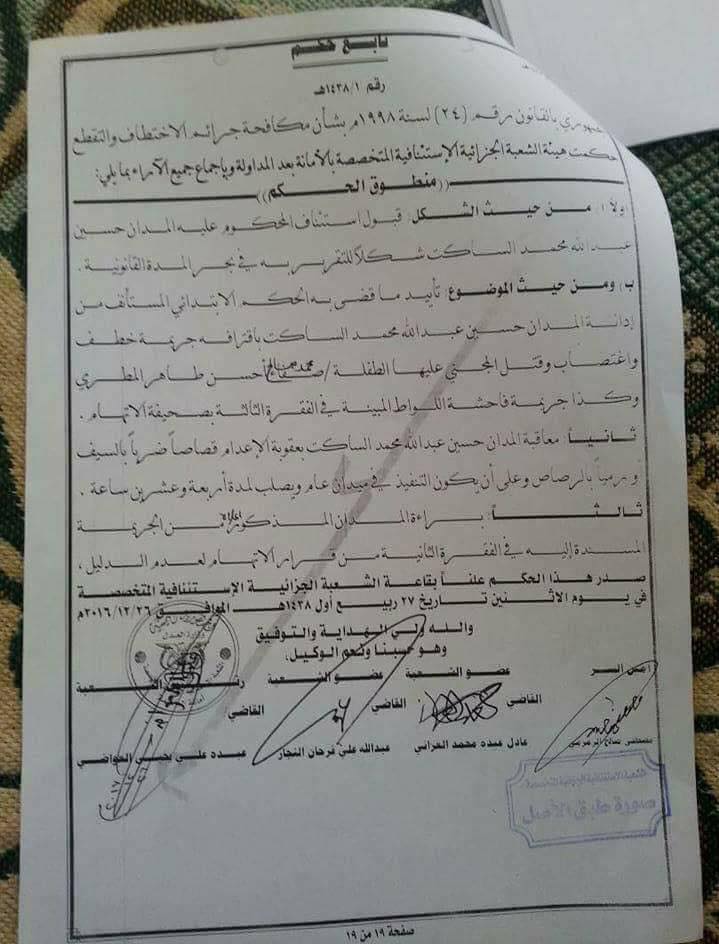 تابع حكم
رقم ١٤٣٨/١هـ
جمهوري بالقانون رقم (٢٤) لسنة ١٩٩٨م بشأن مكافحة جرائم الاختطاف والتقطع
حكمت هيئة الشعبة الجزائية الإستئنافية المتخصصة بالأمانة بعد المداولة وبإجماع جميع الآراء بما يلي:
((منطوق الحكم))
اولاً أ. من حيث الشكل: قبول استئناف المحكوم عليه المدان حسين
عبدالله محمد الساكت شكلاً للتقرير به في بحر المدة القانونية .
ب) ومن حيث الموضوع: تأييد ما قضى به الحكم الابتدائي المستأنف من
إدانة المدان حسين عبدالله محمد الساكت باقترافه جريمة خطف
واغتصاب وقتل المجني عليها الطفلة / صفاء محمد أحسن طاهر المطري
وكذا جريمة فاحشة اللواط المبينة في الفقرة الثالثة بصحيفة الاتهام .
ثانياً: معاقبة المدان حسين عبدالله محمد الساكت بعقوبة الإعدام قصاصاً ضرباً بالسيف
أو رمياً بالرصاص وعلى أن يكون التنفيذ في ميدان عام ويصلب لمدة أربعة وعشرين ساعة .
ثالثاً: براءة المدان المذكور من الجريمة
المسندة إليه في الفقرة الثانية من قرار الاتهام لعدم الدليل ،
صدر هذا الحكم علناً بقاعة الشعبة الجزائية الإستئنافية المتخصصة
في يوم الاثنين تاريخ ٢٧ ربيع أول ١٤٣٨هـ الموافق ٢٠١٦/١٢/٢٦م
والله ولي الهداية والتوفيق
وهو حسبنا ونعم الوكيل،
أمين السر عضو الشعبة عضو الشعبة رئيس الشعبة
القاضي القاضي القاضي
عادل عبده محمد الحراني عبدالله علي فرحان النجار عبده علي يحيى الحواضي
صورة طبق الأصل
صفحة ١٩ من ١٩